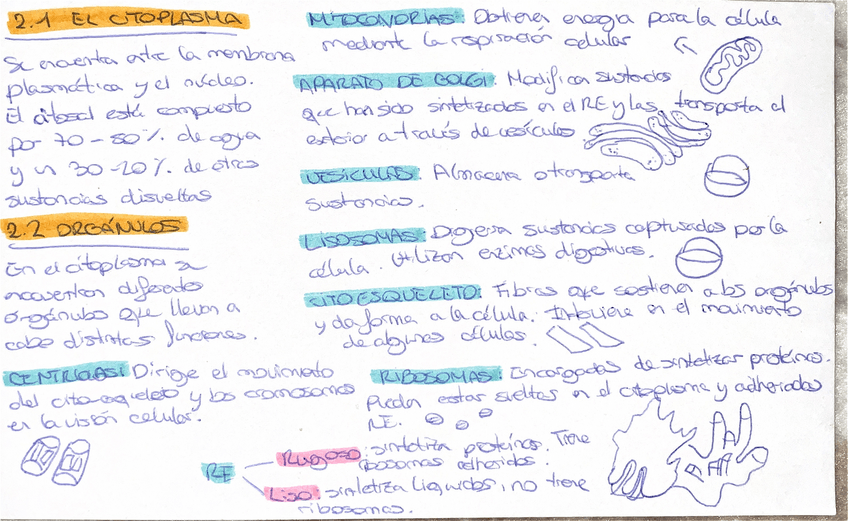 2.1 EL CITOPLASMA
Se encuentra entre la membrana
plasmática y el núcleo.
El citosol está compuesto
por 70 - 80 %. de agua
y un 30 -20 %. de otras
sustancias disueltas
2.2 ORGÁNULOS
En el citoplasma se
encuentran diferentes
orgánulos que llevan a
cabo distintas funciones.
CENTRIOLOS: Dirige el movimiento
del citoesqueleto y los cromosomas
en la visión celular.
MITOCONDRIAS: Obtienen energía para la célula
mediante la respiración celular
APARATO DE GOLGI: Modifica sustancias
que han sido sintetizadas en el RE y las transporta al
exterior a través de vesículas
VESÍCULAS: Almacena o transporta
sustancias.
LISOSOMAS: Digieren sustancias capturadas por la
célula. Utilizan enzimas digestivas.
CITOESQUELETO: Fibras que sostienen a los orgánulos
y da forma a la célula. Interviene en el movimiento
de algunas células.
RIBOSOMAS: Encargados de sintetizar proteínas.
Pueden estar sueltas en el citoplasma y adheridas
RE.
RE
Rugoso: sintetiza proteínas. Tiene
ribosomas adheridos.
Liso: sintetiza líquidos, no tiene
ribosomas.